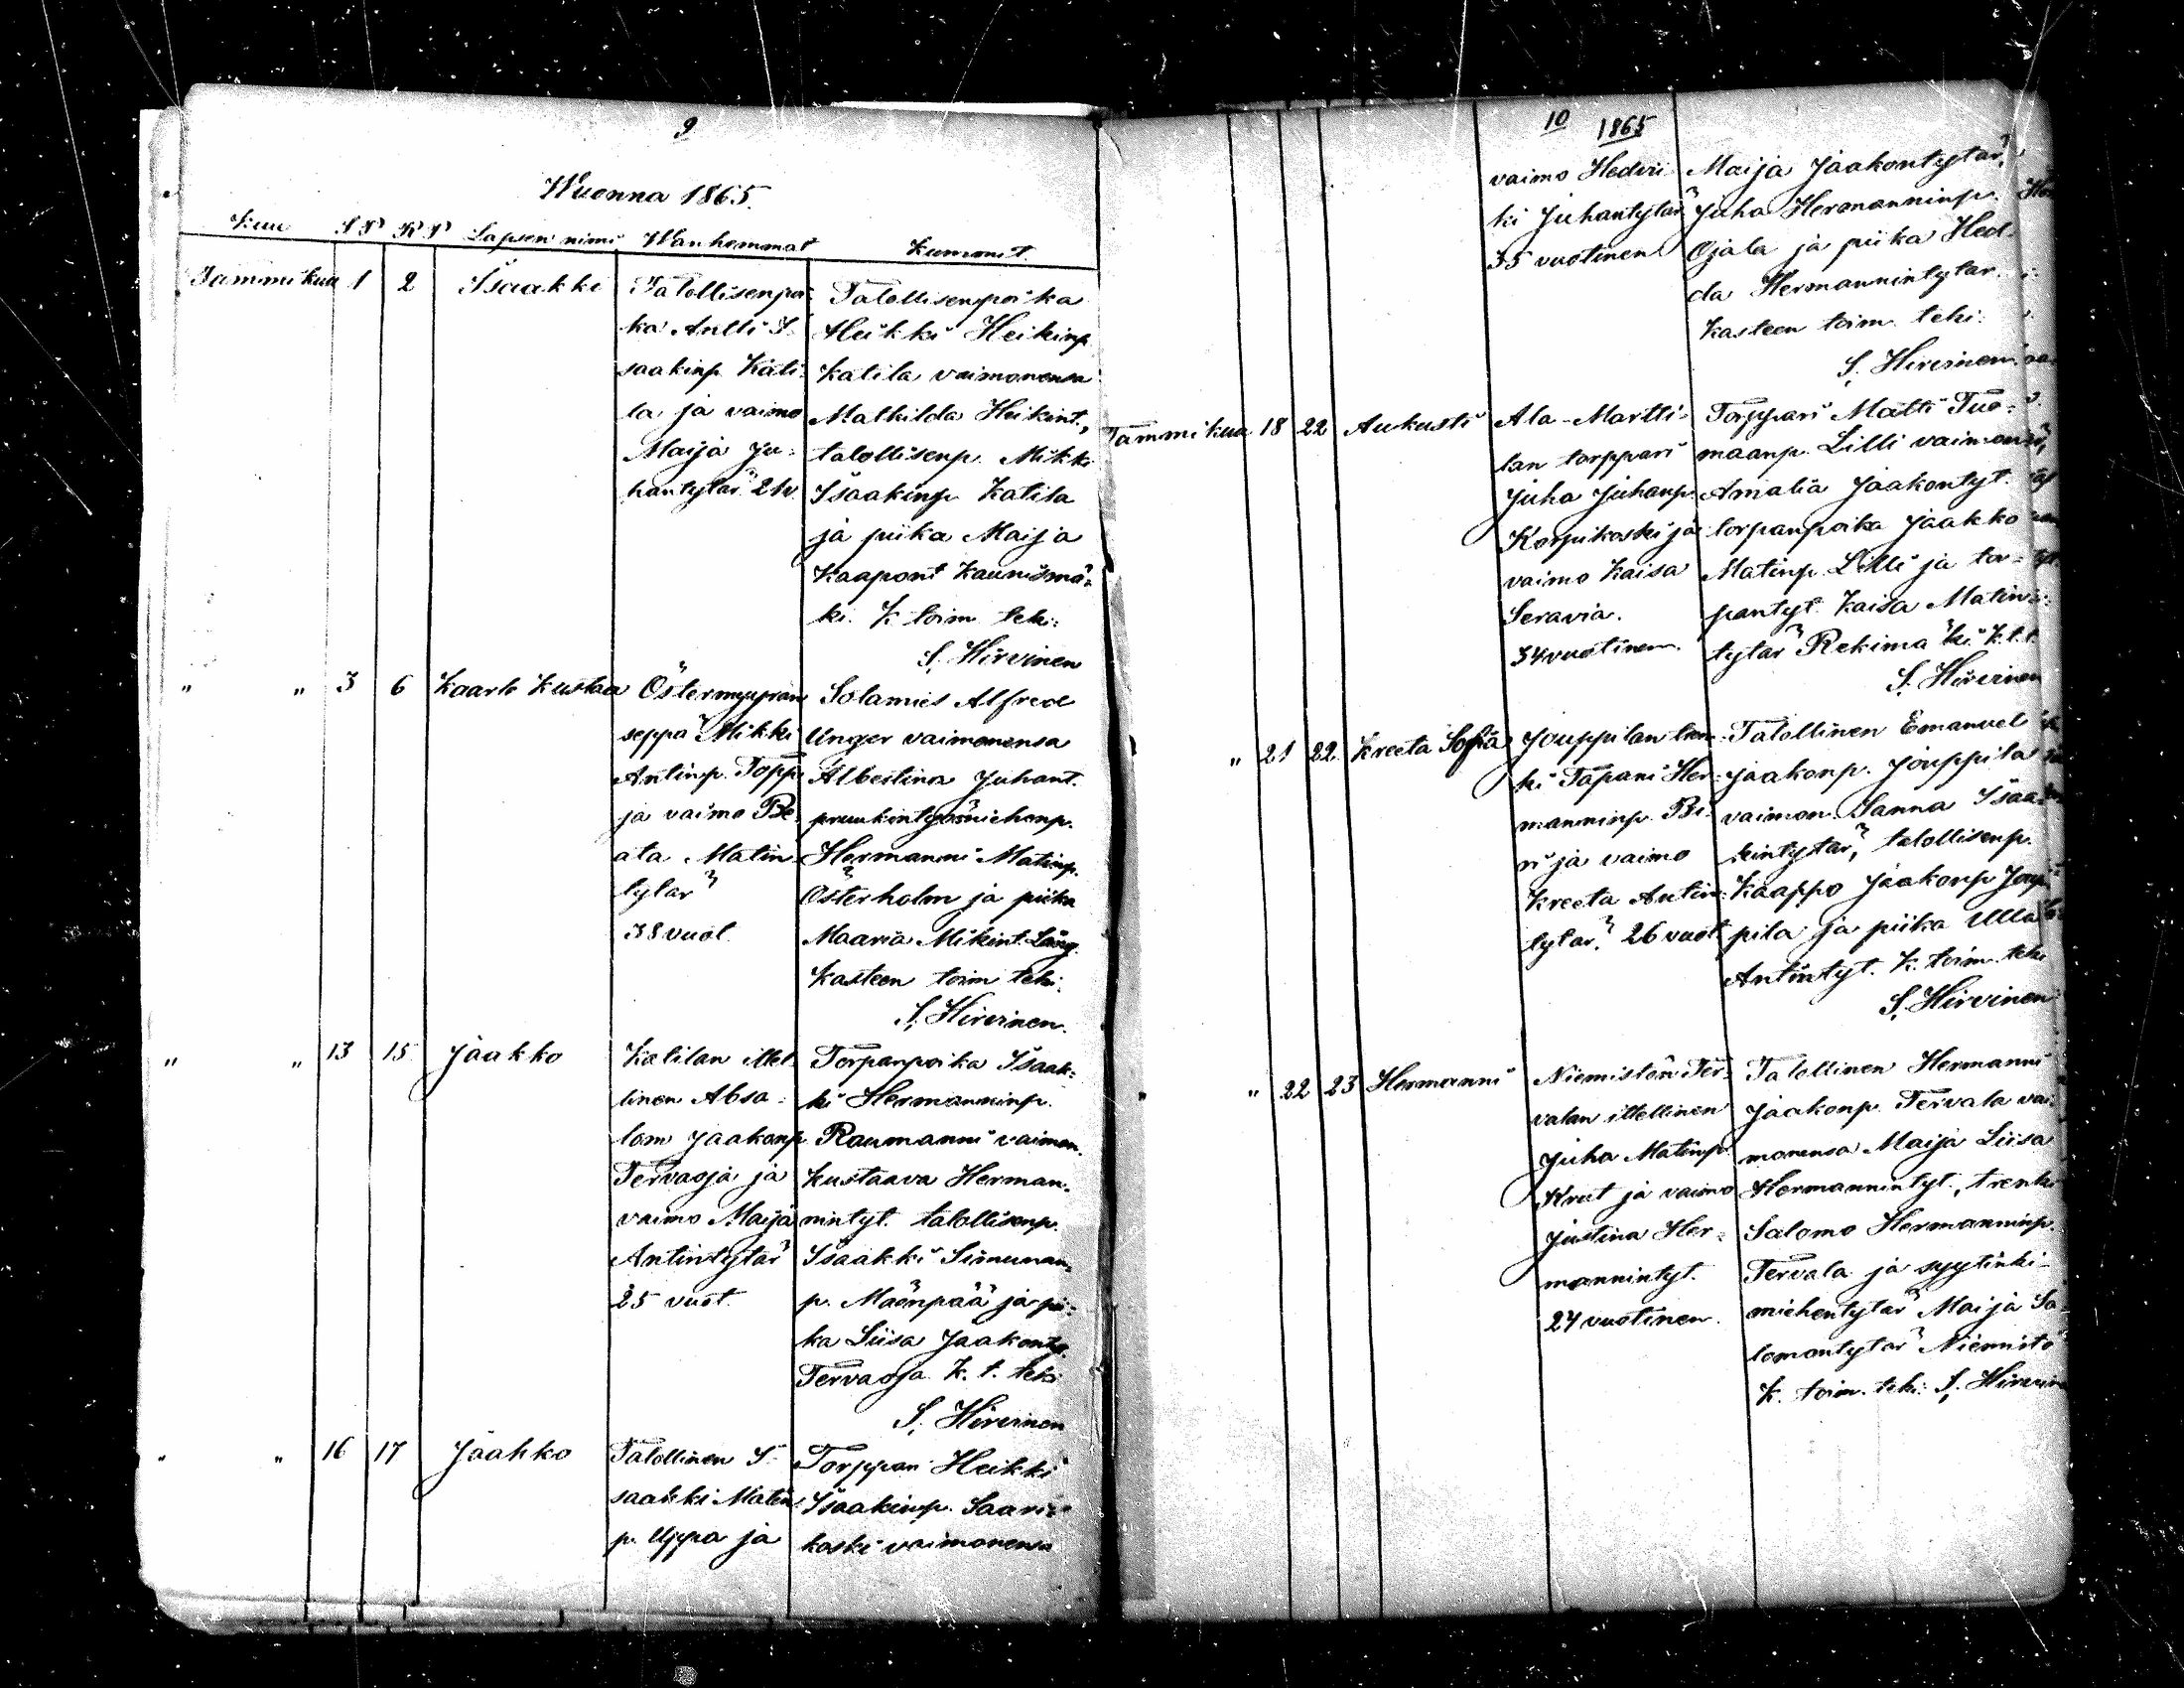 9
Wuonna 1865.
Kuu SP KP Lapsen nimi Wanhemmat Kummit.
Tammikuu 1 2 Isaakki
Talollisenpoi-
ka Antti I-
saakinp. Kati-
la ja vaimo
Maija Ju-
hantytär 21v.
Talollisenpoika
Heikki Heikinp.
Katila vaimonensa
Mathilda Heikint.,
talollisenp. Mikki
Isaakinp. Katila
ja piika Maija
Kaapont Kaunismä-
ki. K. toim. teki:
S. Hirvinen
" " 3 6 Kaarle Kustaa
Östermyyran
seppä Mikki
Antinp. Topp.
ja vaimo Be-
ata Matin-
tytär
38 vuot.
Solamies Alfred
Unger vaimonensa
Albertina Juhant.
pruukintyömiehenp.
Hermanni Matinp.
Österholm ja piika
Maaria Mikint. Lång.
Kasteen toim teki:
S. Hirvinen.
" " 13 15 Jaakko
Katilan ittel-
linen Absa-
lom Jaakonp.
Tervaoja ja
vaimo Maija
Antintytär
25 vuot.
Torpanpoika Isaak-
ki Hermanninp.
Raumanni vaimon.
Kustaava Herman-
nintyt. talollisenp.
Isaakki Simunan-
p. Mäenpää ja pii-
ka Liisa Jaakontyt.
Tervaoja. K. t. teki
S. Hirvinen
" " 16 17 Jaakko
Talollinen I-
saakki Matin-
p. Uppa ja
Torppari Heikki
Isaakinp. Saari-
koski vaimonensa
10 1865
vaimo Hedvi-
ki Juhantytär
35 vuotinen
Maija Jaakontytär,
Juha Hermanninp.
Ojala ja piika Hed-
da Hermannintytär.
Kasteen toim. teki:
S. Hirvinen
Tammikuu 18 22 Aukusti
Ala-Martti-
lan torppari
Juha Juhanp.
Korpikoski ja
vaimo Kaisa
Seravia.
34 vuotinen.
Torppari Matti Tuo-
maanp. Lilli vaimon.
Amalia Jaakontyt.
torpanpoika Jaakko
Matinp. Lilli ja tor-
pantyt. Kaisa Matin-
tytär Rekimäki. K. t. t.
S. Hirvinen
" 21 22 Kreeta Sofia
Jouppilan tren-
ki Tapani Her-
manninp. Bi-
ri ja vaimo
Kreeta Antin-
tytär. 26 vuot.
Talollinen Emanuel
Jaakonp. Jouppila
vaimon. Sanna Isaa-
kintytär, talollisenp.
Kaappo Jaakonp Joup-
pila ja piika Ulla
Antintyt. K. toim. teki
S. Hirvinen
" " 22 23 Hermanni
Niemistön Ter-
valan ittellinen
Juha Matinp.
Krut ja vaimo
Justina Her-
mannintyt.
24 vuotinen.
Talollinen Hermanni
Jaakonp. Tervala vai-
monensa Maija Liisa
Hermannintyt., trenki
Salomo Hermanninp.
Tervala ja syytinki-
miehentytär Maija Sa-
lomontytär Niemistö
K. toim. teki: S. Hirvinen